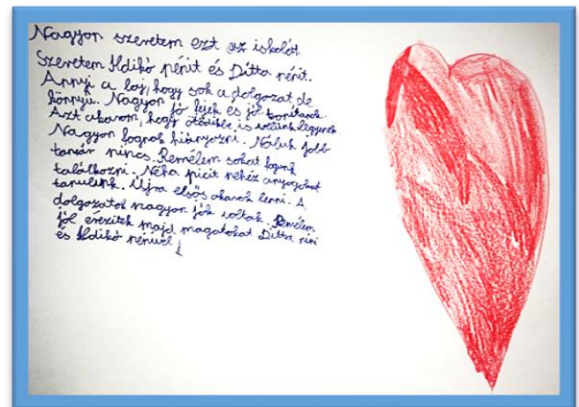 Nagyon szeretem ezt az iskolát
Szeretem Ildikó nénit és Ditta nénit.
Annyi a baj, hogy sok a dolgozat, de
könnyű. Nagyon jó fejek és jól tanítanak.
Azt akarom, hogy ötödikbe is velünk legyenek
Nagyon fognak hiányozni. Náluk jobb
tanár nincs. Remélem sokat fogunk
találkozni. Néha picit nehéz anyagokat
tanulunk. Újra elsős akarok lenni. A
dolgozatok nagyon jók voltak. Remélem
jól érzitek majd magatokat Ditta néni
és Ildikó nénivel!